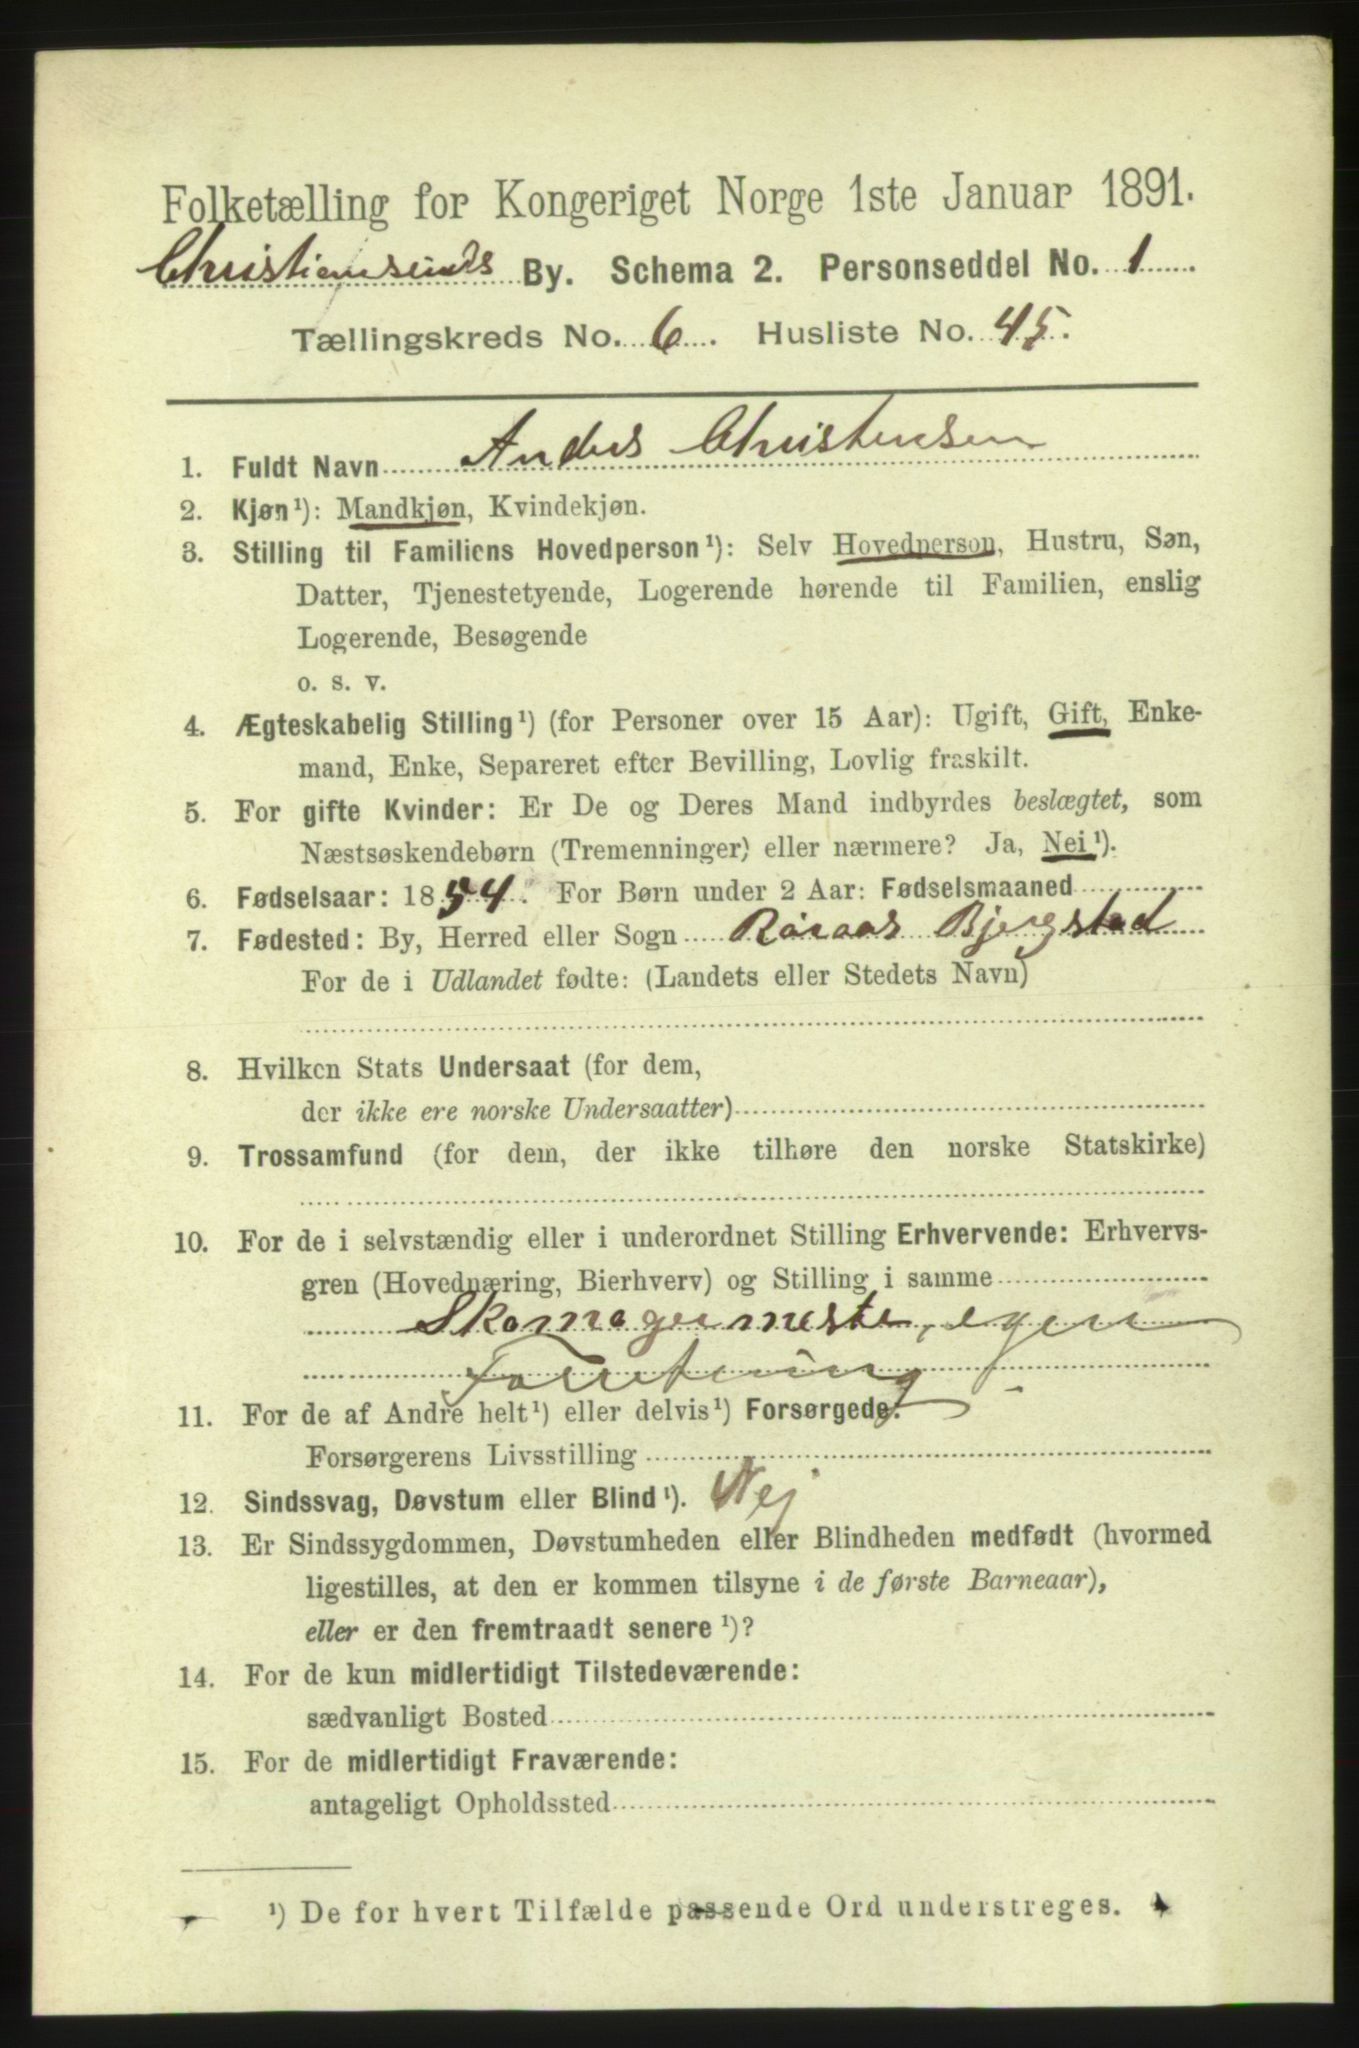 Folketælling for Kongeriget Norge 1ste Januar 1891.
Christiansunds By. Schema 2. Personseddel No. 1
Tællingskreds No. 6. Husliste No. 45.
1. Fuldt Navn Anders Christensen
2. Kjøn¹): Mandkjøn, Kvindekjøn.
3. Stilling til Familiens Hovedperson¹): Selv Hovedperson, Hustru, Søn,
Datter, Tjenestetyende, Logerende hørende til Familien, enslig
Logerende, Besøgende
o. s. v.
4. Ægteskabelig Stilling¹) (for Personer over 15 Aar): Ugift, Gift, Enke-
mand, Enke, Separeret efter Bevilling, Lovlig fraskilt.
5. For gifte Kvinder: Er De og Deres Mand indbyrdes beslægtet, som
Næstsøskendebørn (Tremenninger) eller nærmere? Ja, Nei¹).
6. Fødselsaar: 1854. For Børn under 2 Aar: Fødselsmaaned
7. Fødested: By, Herred eller Sogn Röraas Bjergstad
For de i Udlandet fødte: (Landets eller Stedets Navn)
8. Hvilken Stats Undersaat (for dem,
der ikke ere norske Undersaatter)
9. Trossamfund (for dem, der ikke tilhøre den norske Statskirke)
10. For de i selvstændig eller i underordnet Stilling Erhvervende: Erhvervs-
gren (Hovednæring, Bierhverv) og Stilling i samme
Skomagermester, egen
Forretning
11. For de af Andre helt¹) eller delvis¹) Forsørgede:
Forsørgerens Livsstilling
12. Sindssvag, Døvstum eller Blind¹). Nej
13. Er Sindssygdommen, Døvstumheden eller Blindheden medfødt (hvormed
ligestilles, at den er kommen tilsyne i de første Barneaar),
eller er den fremtraadt senere¹)?
14. For de kun midlertidigt Tilstedeværende:
sædvanligt Bosted
15. For de midlertidigt Fraværende:
antageligt Opholdssted
¹) De for hvert Tilfælde passende Ord understreges.